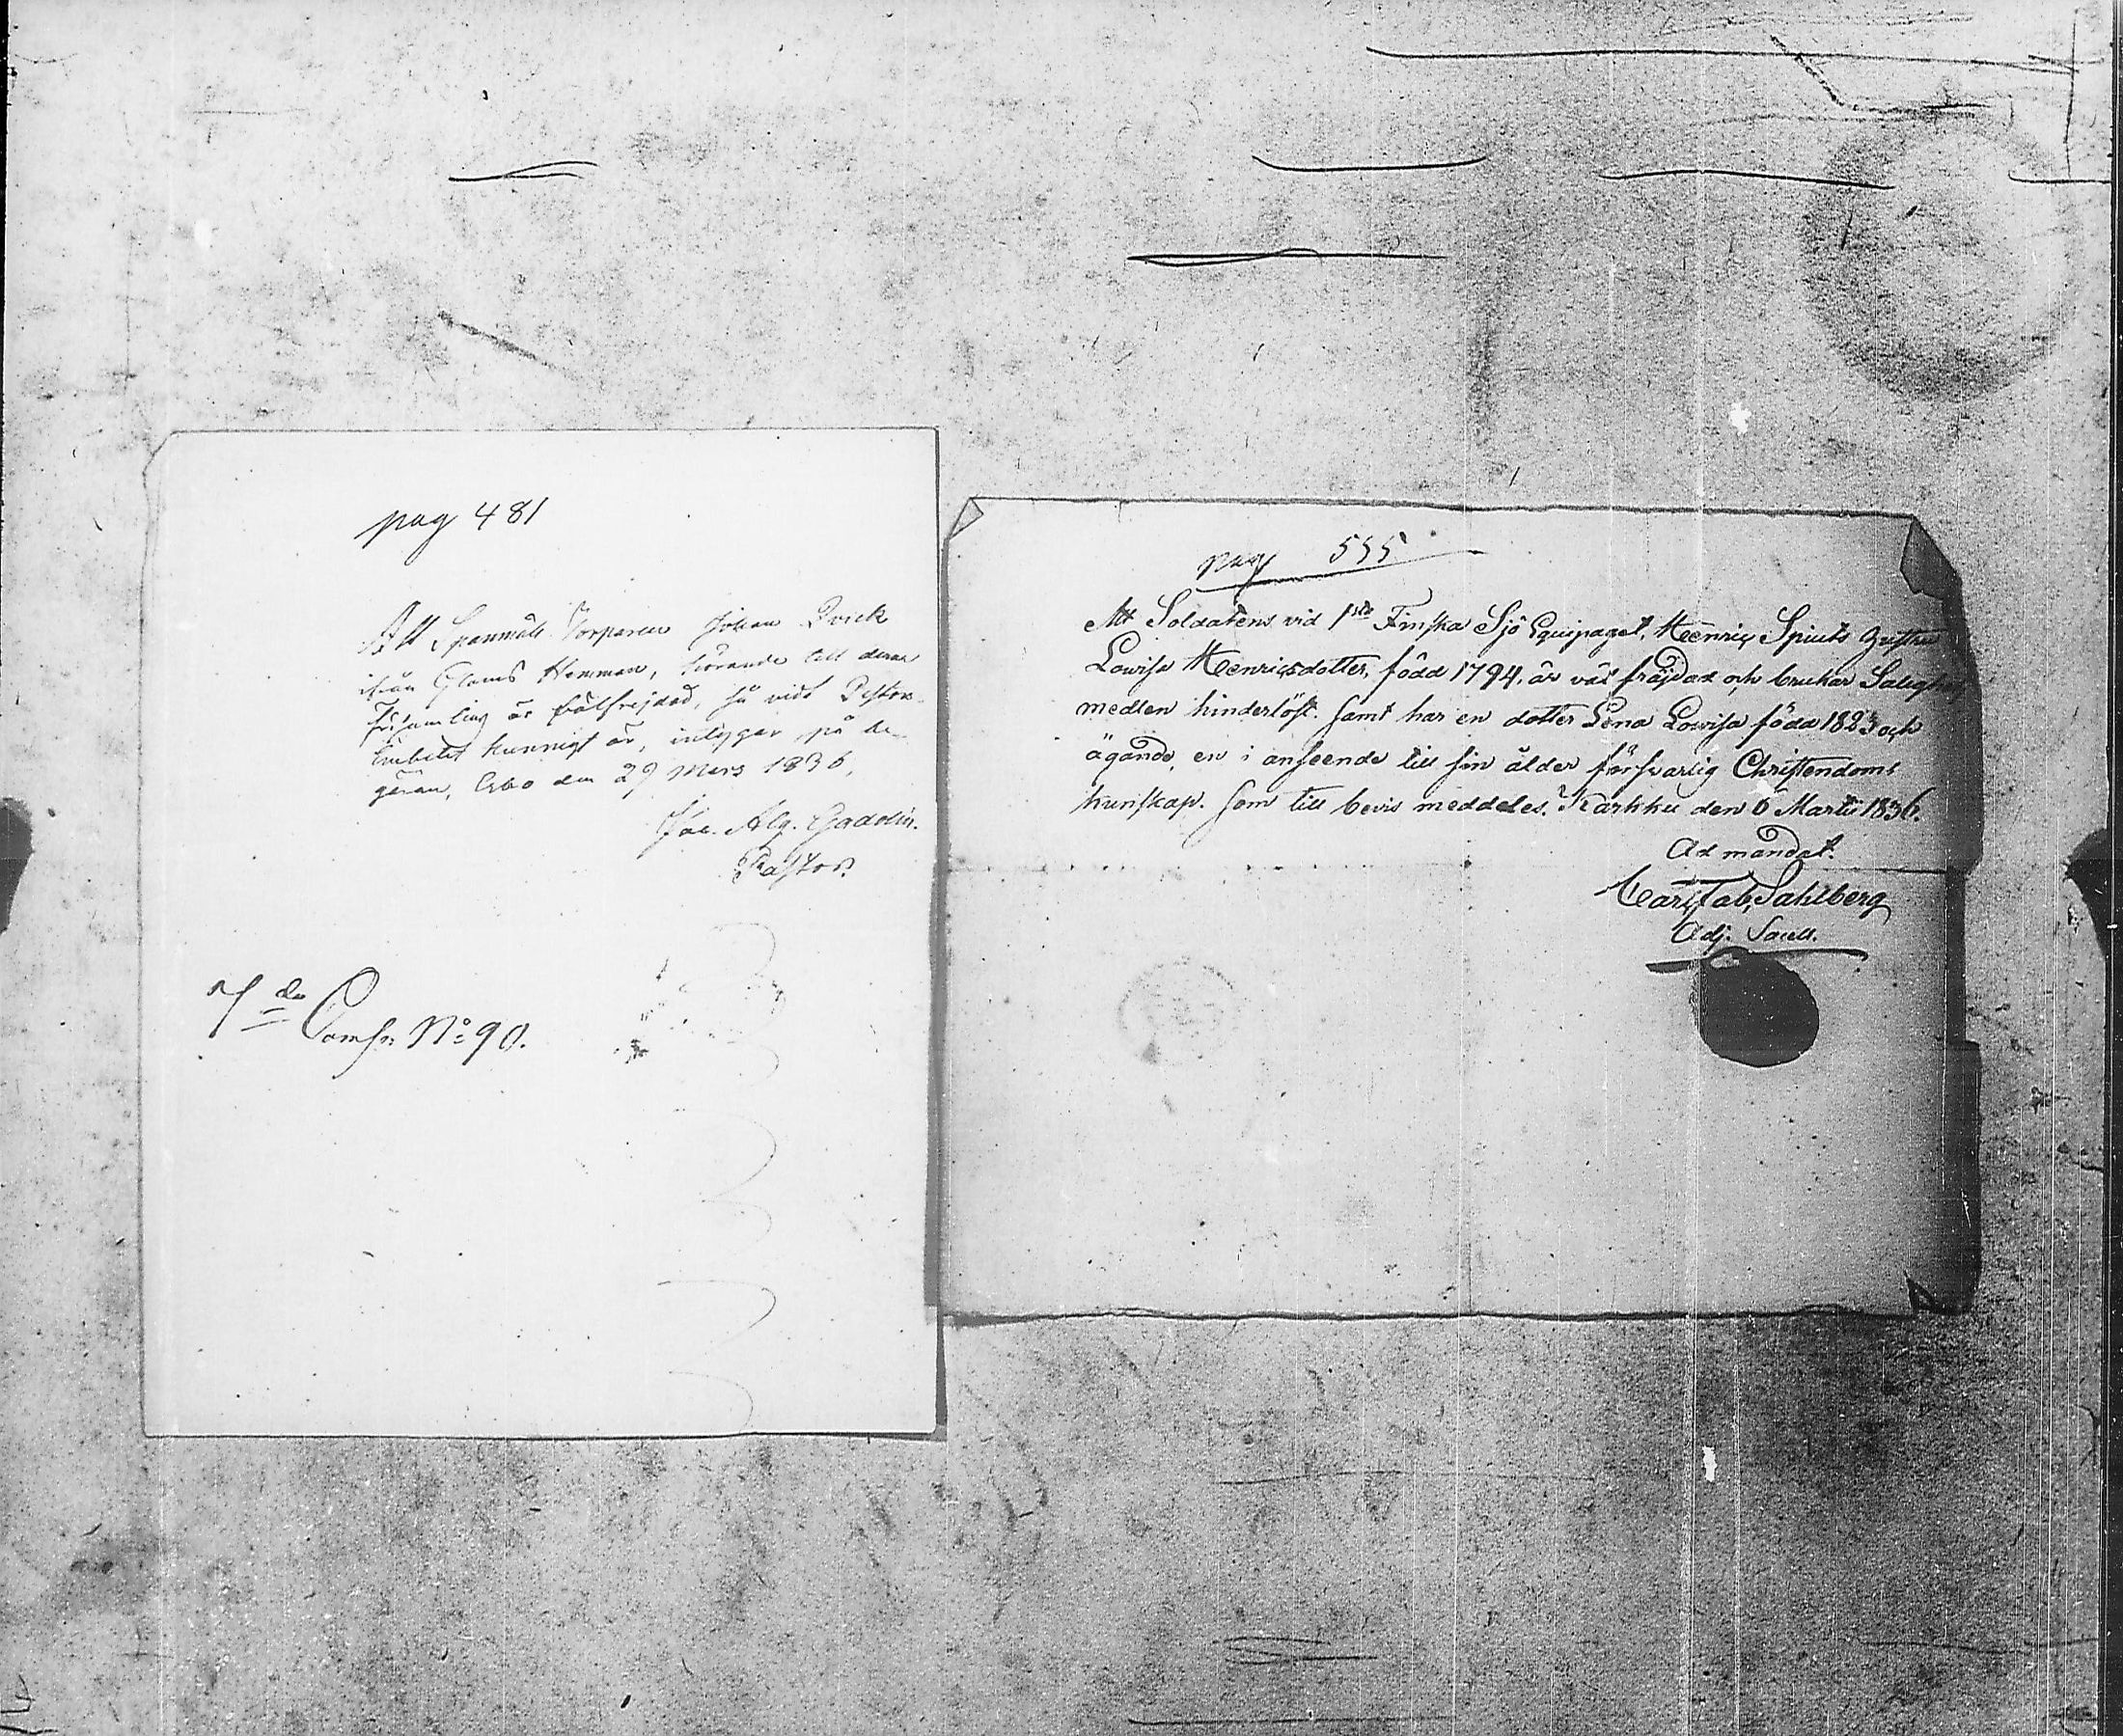 pag 481
Att Spanmåls Torparen Johan Qvick
ifrån Glams Hemman, hörande till denna
församling är välfrejdad, så vidt Pastors-
Embetet kunnigt är, intygar på be-
gäran, Esbo den 29 Mars 1836,
Jac. Alg. Gadolin.
Pastor.
7de Comps. No 90.
pag 555
Att Soldatens vid 1sta Finska Sjö Equipaget, Henric Spiuts hustru
Lovisa Henricsdotter, född 1794, är väl fräjdad och brukar Salighets
medlen hinderlöst. Samt har en dotter Lena Lovisa född 1823 och
ägande, en i anseende till sin ålder försvarlig Christendoms
kunskap. Som till bevis meddeles. Karkku den 6 Martii 1836.
Ad mandat.
Sahlberg
Adj. Sacell.